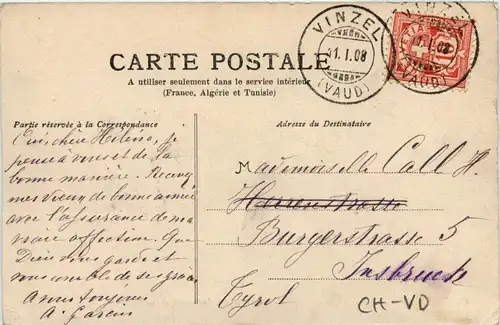 VINZEL
31.I.08
(VAUD)
VINZEL
I.08
(VAUD)
CARTE POSTALE
A utiliser seulement dans le service intérieur
(France, Algérie et Tunisie)
Partie réservée à la Correspondance
Adresse du Destinataire
Oui, chère Hélène, je
pense à vous et de la
bonne manière. Recevez
mes vœux de bonne année
avec l'assurance de ma
vraie affection. Que
Dieu vous garde et
vous comble de ses grâces
A vous toujours
A.
Mademoiselle Call H.
Herrenstrasse
Burgerstrasse 5
Insbruck
Tyrol
CH-VD